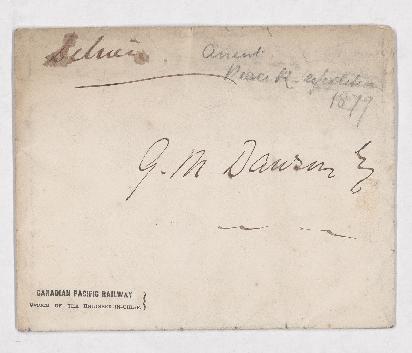 Selwin
Peace R. expedition
1879
G. M Dawson Esq
CANADIAN PACIFIC RAILWAY
OFFICE OF THE ENGINEER-IN-CHIEF.